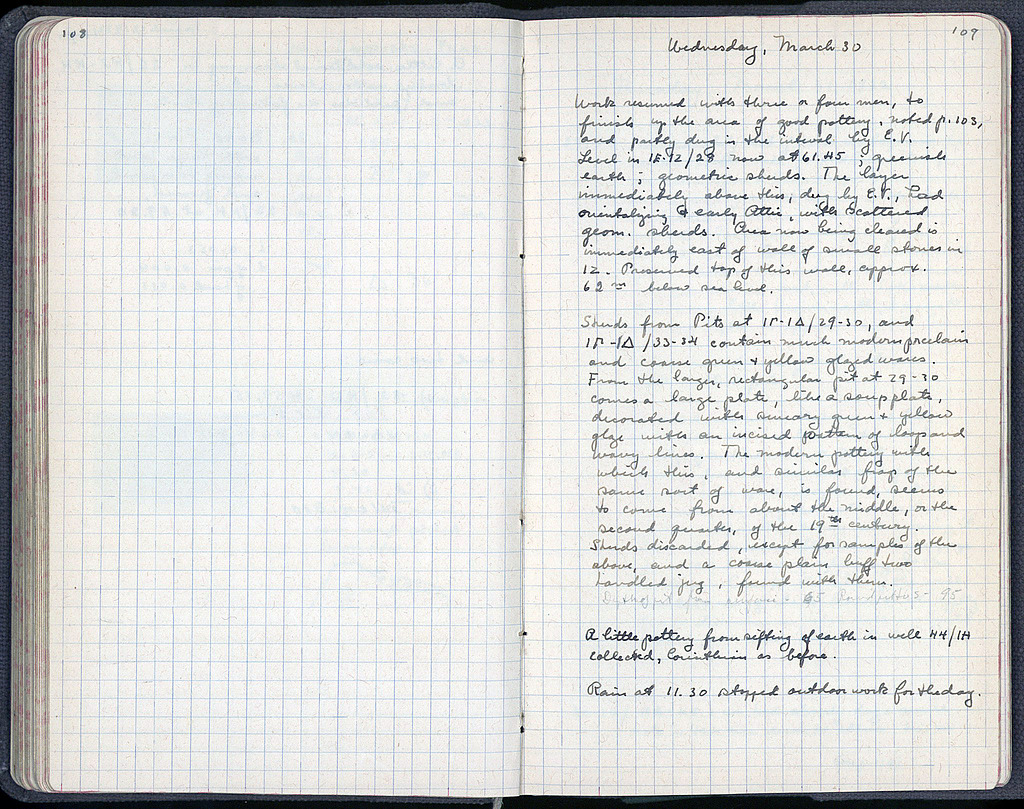 108
109
Wednesday, March 30
Work resumed with three or four men, to
finish up the area of good pottery, noted p. 103,
and partly dug in the interval by E.V.
Level in ΙΕ-12/28 now at 61.45; greenish
earth; geometric sherds. The layer
immediately above this, dug by E.V., had
orientalizing & early Attic, with scattered
geom. sherds. Area now being cleared is
immediately east of wall of small stones in
12. Preserved top of this wall, approx.
62 m below sea level.
Sherds from Pits at ΙΓ-ΙΔ/29-30, and
ΙΓ-ΙΔ/33-34 contain much modern porcelain
and coarse green & yellow glazed wares.
From the larger, rectangular pit at 29-30
comes a large plate, like a soup plate,
decorated with smeary green & yellow
glaze with an incised pattern of loops and
wavy lines. The modern pottery with
which this, and similar frags of the
same sort of ware, is found, seems
to come from about the middle, or the
second quarter, of the 19th century.
Sherds discarded, except for samples of the
above, and a coarse plain buff two
handled jug, found with them.
65 95
A little pottery from sifting of earth in well 44/ΙΗ
collected, Corinthian as before.
Rain at 11.30 stopped outdoor work for the day.